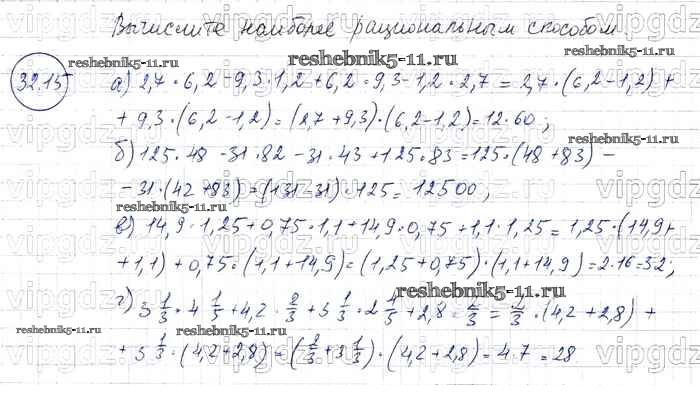 Вычислите наиболее рациональным способом.
reshebnik5-11.ru
reshebnik5-11.ru
32.15
а) 2,7 · 6,2 - 9,3 · 1,2 + 6,2 · 9,3 - 1,2 · 2,7 = 2,7 · (6,2 - 1,2) +
+ 9,3 · (6,2 - 1,2) = (2,7 + 9,3) · (6,2 - 1,2) = 12 · 60;
reshebnik5-11.ru
б) 125 · 48 - 31 · 82 - 31 · 43 + 125 · 83 = 125 · (48 + 83) -
- 31 · (42 + 83) = (131 - 31) · 125 = 12500;
reshebnik5-11.ru
в) 14,9 · 1,25 + 0,75 · 1,1 + 14,9 · 0,75 + 1,1 · 1,25 = 1,25 · (14,9 +
+ 1,1) + 0,75 · (1,1 + 14,9) = (1,25 + 0,75) · (1,1 + 14,9) = 2 · 16 = 32;
reshebnik5-11.ru
г) 3 1/3 · 4 1/5 + 4,2 · 2/3 + 3 1/3 · 2 4/5 + 2,8 · 2/3 = 2/3 · (4,2 + 2,8) +
reshebnik5-11.ru
+ 3 1/3 · (4,2 + 2,8) = (2/3 + 3 1/3) · (4,2 + 2,8) = 4 · 7 = 28